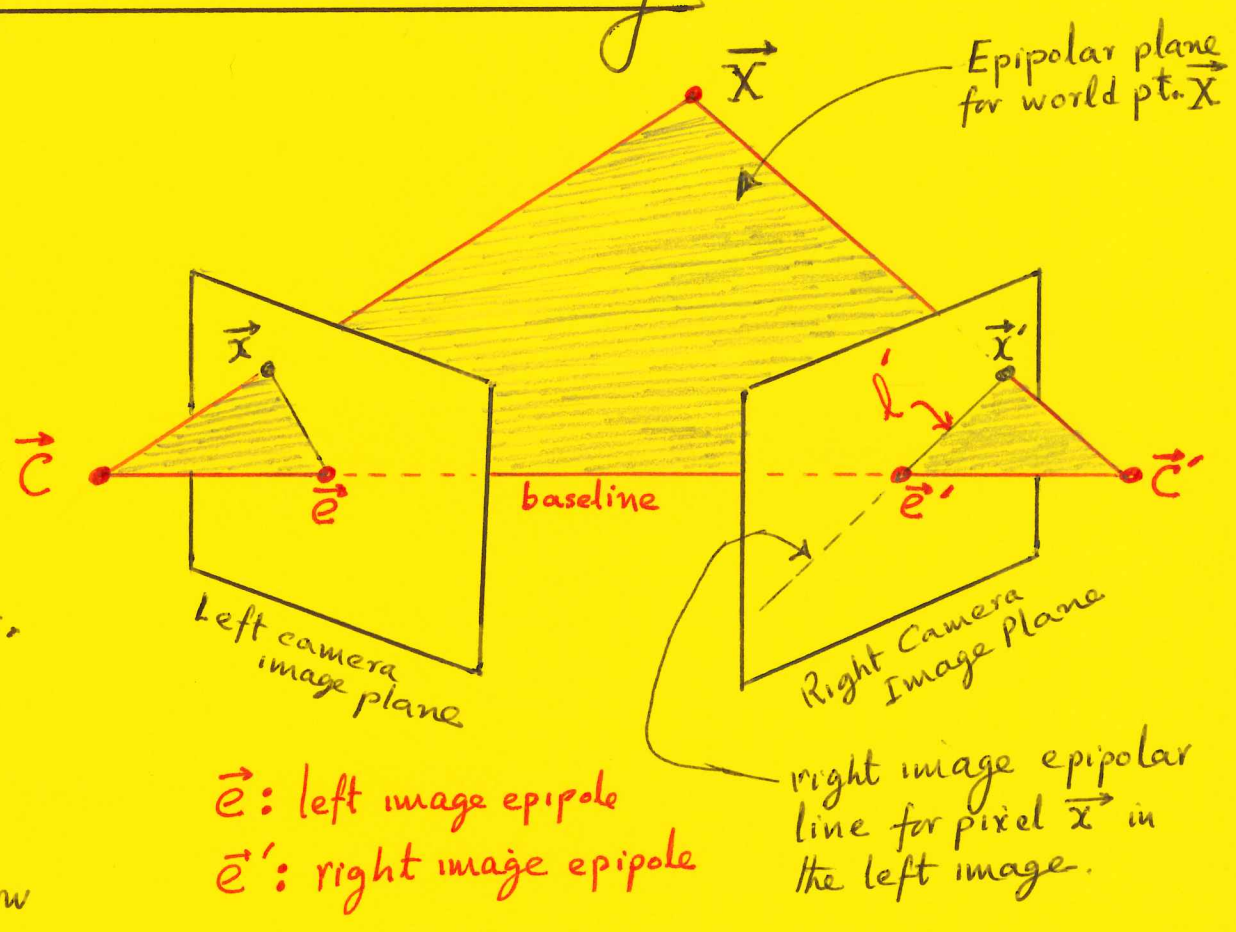 X⃗
Epipolar plane
for world pt. X⃗
x⃗
x⃗′
l′
C⃗
e⃗
baseline
e⃗′
C⃗′
Left camera
image plane
Right Camera
Image Plane
e⃗: left image epipole
e⃗′: right image epipole
right image epipolar
line for pixel x⃗ in
the left image.
w